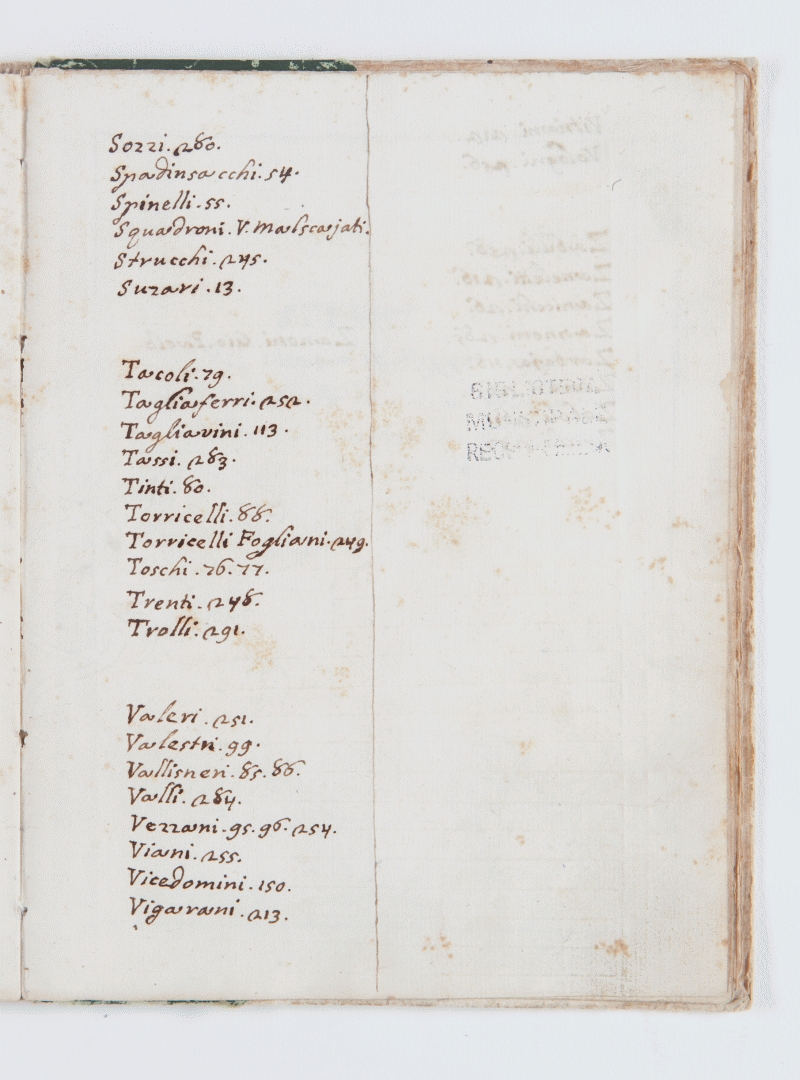 Sozzi. 280.
Spadinsacchi. 54.
Spinelli. 55.
Squadroni. V. Malscajati.
Strucchi. 245.
Suzari. 13.
Tacoli. 79.
Tagliaferri. 252.
Tagliavini. 113.
Tassi. 283.
Tinti. 80.
Torricelli. 88.
Torricelli Fogliani. 249.
Toschi. 76. 77.
Trenti. 248.
Trolli. 291.
Valeri. 251.
Valestri. 99.
Vallisneri. 85. 86.
Valli. 284.
Vezzani. 95. 96. 254.
Viani. 255.
Vicedomini. 150.
Vigarani. 213.